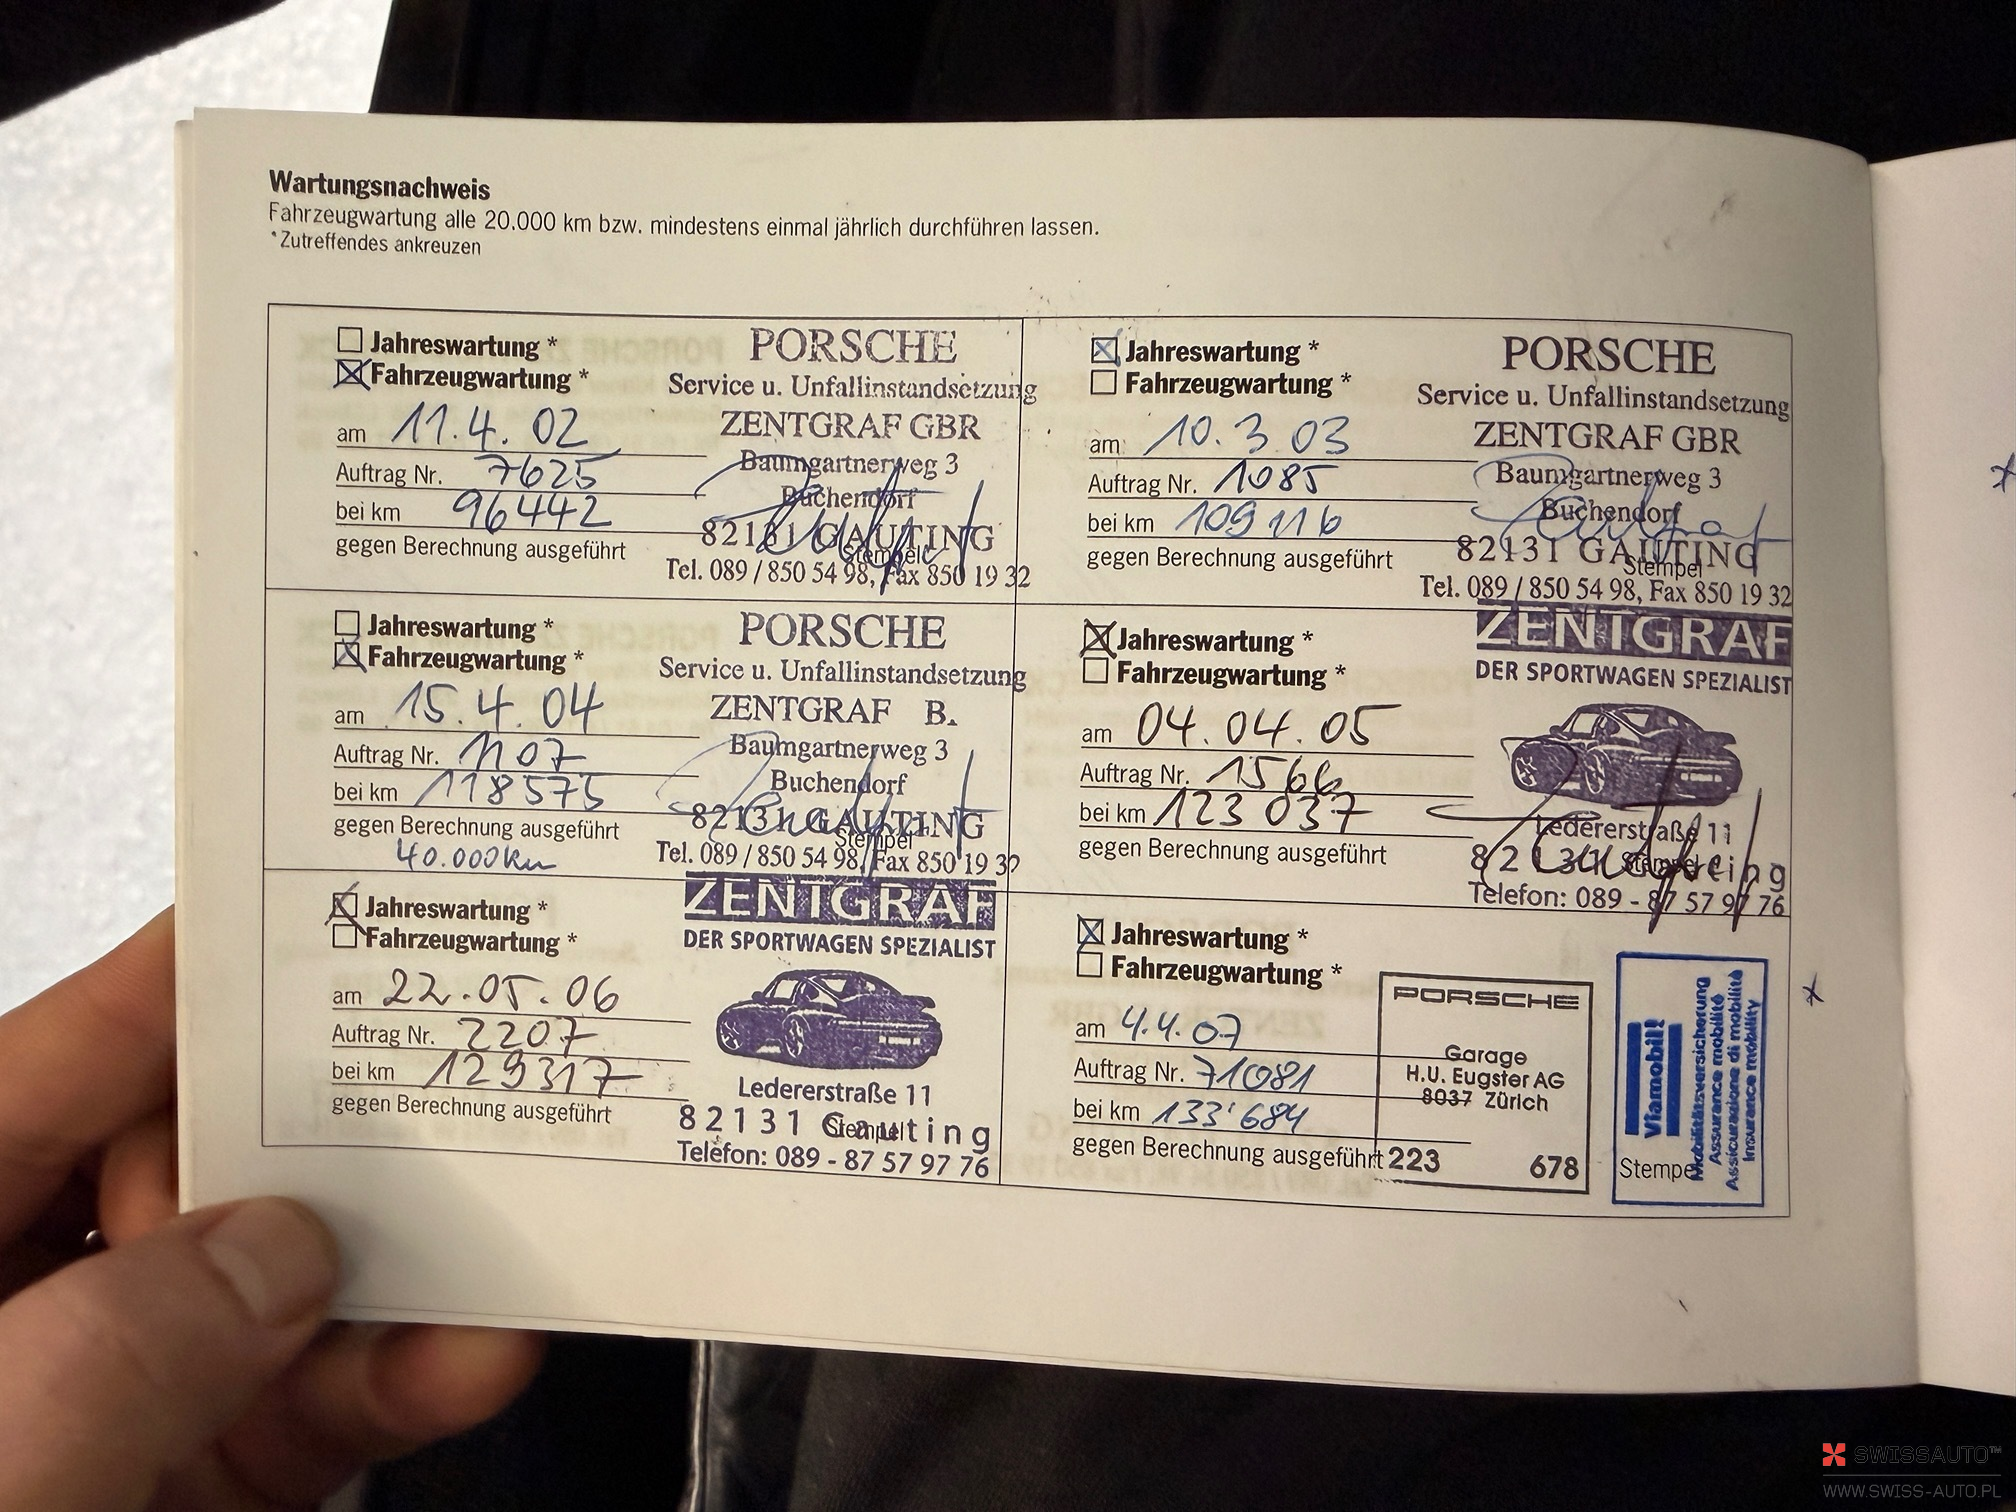 Wartungsnachweis
Fahrzeugwartung alle 20.000 km bzw. mindestens einmal jährlich durchführen lassen.
*Zutreffendes ankreuzen
Jahreswartung *
Fahrzeugwartung *
am 11.4.02
Auftrag Nr. 7625
bei km 96442
gegen Berechnung ausgeführt
PORSCHE
Service u. Unfallinstandsetzung
ZENTGRAF GBR
Baumgartnerweg 3
Buchendorf
82131 GAUTING
Stempel
Tel. 089 / 850 54 98, Fax 850 19 32
Jahreswartung *
Fahrzeugwartung *
am 10.3.03
Auftrag Nr. 1085
bei km 109116
gegen Berechnung ausgeführt
PORSCHE
Service u. Unfallinstandsetzung
ZENTGRAF GBR
Baumgartnerweg 3
Buchendorf
82131 GAUTING
Stempel
Tel. 089 / 850 54 98, Fax 850 19 32
Jahreswartung *
Fahrzeugwartung *
am 15.4.04
Auftrag Nr. 1107
bei km 118575
gegen Berechnung ausgeführt
40.000km
PORSCHE
Service u. Unfallinstandsetzung
ZENTGRAF B.
Baumgartnerweg 3
Buchendorf
82131 GAUTING
Stempel
Tel. 089 / 850 54 98, Fax 850 19 32
Jahreswartung *
Fahrzeugwartung *
am 04.04.05
Auftrag Nr. 1566
bei km 123 037
gegen Berechnung ausgeführt
ZENTGRAF
DER SPORTWAGEN SPEZIALIST
Ledererstraße 11
Stempel
Telefon: 089 - 87 57 97 76
Jahreswartung *
Fahrzeugwartung *
am 22.05.06
Auftrag Nr. 2207
bei km 129317
gegen Berechnung ausgeführt
ZENTGRAF
DER SPORTWAGEN SPEZIALIST
Ledererstraße 11
82131 Gauting
Stempel
Telefon: 089 - 87 57 97 76
Jahreswartung *
Fahrzeugwartung *
am 4.4.07
Auftrag Nr. 71081
bei km 133'684
gegen Berechnung ausgeführt
PORSCHE
Garage
H.U. Eugster AG
8037 Zürich
223 678
Stempel
Viamobil!
Mobilitätsversicherung
Assurance mobilité
Assicurazione di mobilità
Insurance mobility
SWISSAUTO™
WWW.SWISS-AUTO.PL